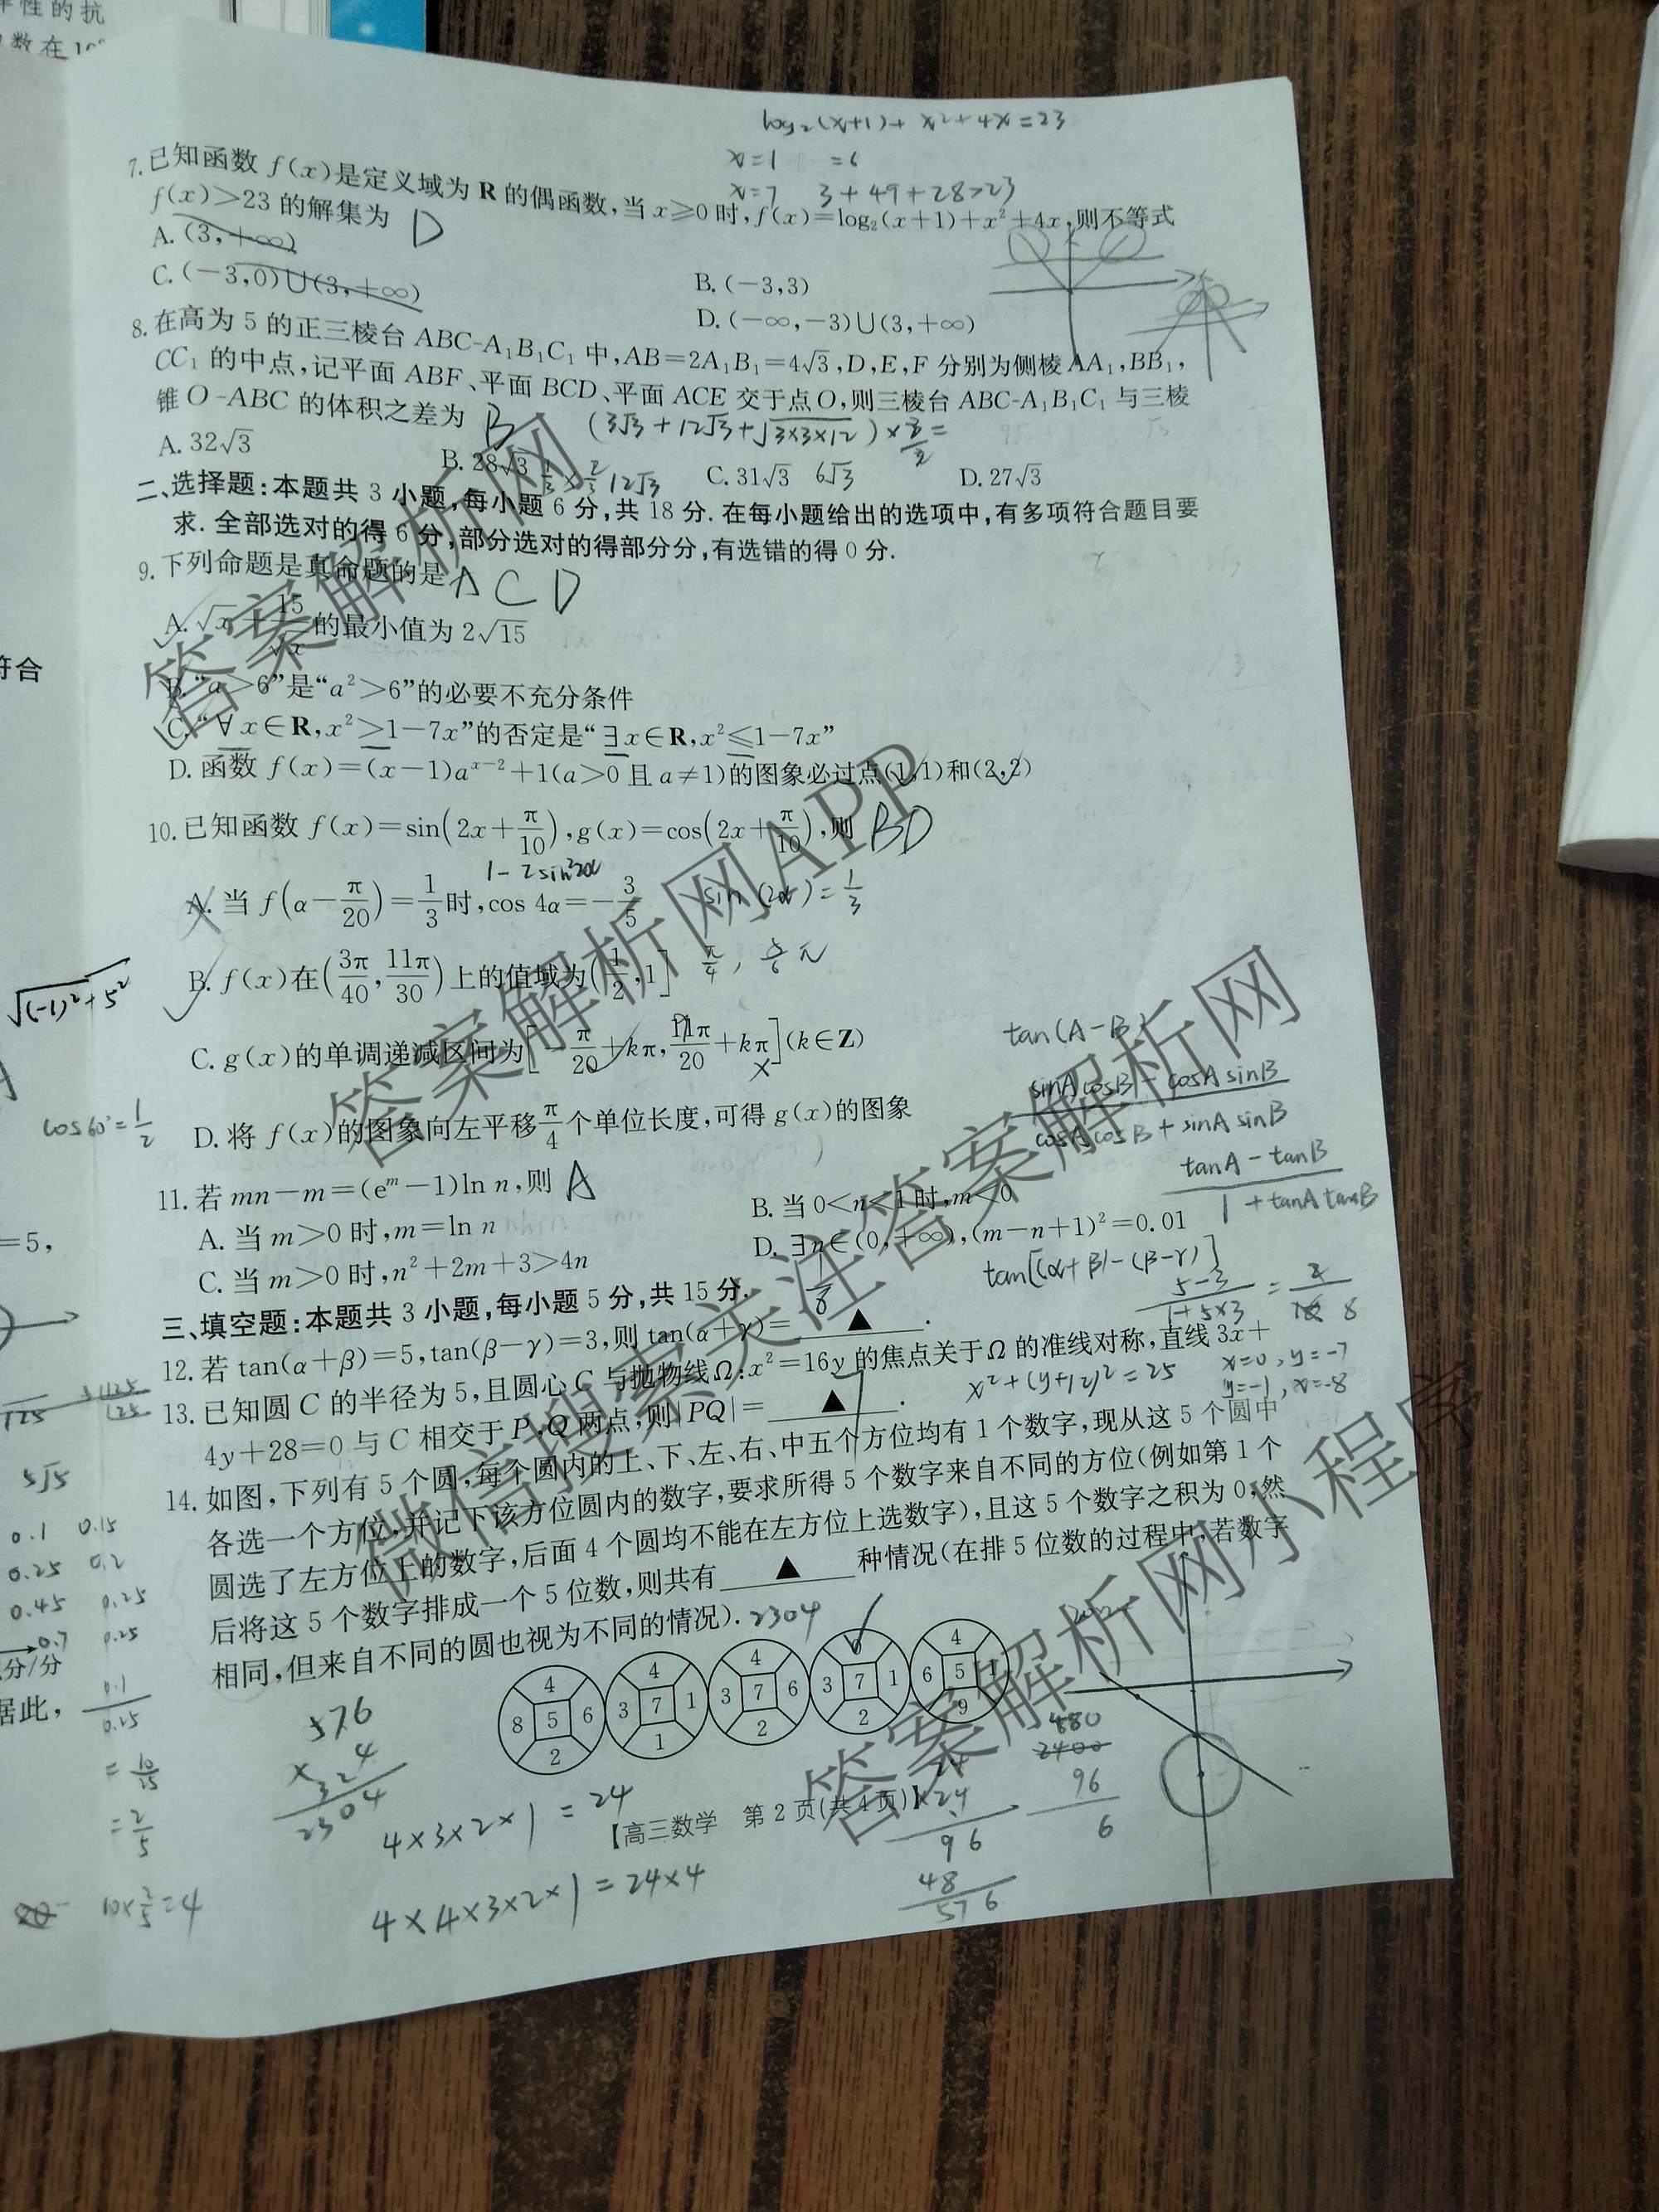 log₂(x+1)+x²+4x=23
x=1 =6
x=7 3+49+28>23
7.已知函数 f(x)是定义域为 R 的偶函数,当 x≥0 时,f(x)=log₂(x+1)+x²+4x,则不等式
f(x)>23 的解集为 D
A.(3,+∞)
B.(-3,3)
C.(-3,0)∪(3,+∞)
D.(-∞,-3)∪(3,+∞)
8.在高为 5 的正三棱台 ABC-A₁B₁C₁ 中,AB=2A₁B₁=4√3,D,E,F 分别为侧棱 AA₁,BB₁,
CC₁ 的中点,记平面 ABF、平面 BCD、平面 ACE 交于点 O,则三棱台 ABC-A₁B₁C₁ 与三棱
锥 O-ABC 的体积之差为 B
A. 32√3 B. 28√3 C. 31√3 D. 27√3
6√3
二、选择题:本题共 3 小题,每小题 6 分,共 18 分. 在每小题给出的选项中,有多项符合题目要
求. 全部选对的得 6 分,部分选对的得部分分,有选错的得 0 分.
9.下列命题是真命题的是 A C D
A. √x+15/√x 的最小值为 2√15
B. “a>6”是“a²>6”的必要不充分条件
C. “∀x∈R,x²>1-7x”的否定是“∃x∈R,x²≤1-7x”
D. 函数 f(x)=(x-1)aˣ⁻²+1(a>0 且 a≠1)的图象必过点(1,1)和(2,2)
10.已知函数 f(x)=sin(2x+π/10),g(x)=cos(2x+π/10),则 BD
1-2sin²2α
A. 当 f(α-π/20)=1/3 时,cos 4α=-3/5 sin(2α)=1/3
B. f(x)在(3π/40,11π/30)上的值域为(1/2,1] π/4, 5/6π
C. g(x)的单调递减区间为[-π/20+kπ,11π/20+kπ](k∈Z)
D. 将 f(x)的图象向左平移π/4个单位长度,可得 g(x)的图象
tan(A-B)
sinAcosB-cosAsinB
cosAcosB+sinAsinB
tanA-tanB
1+tanAtanB
11.若 mn-m=(eᵐ-1)ln n,则 A
A. 当 m>0 时,m=ln n
B. 当 0<n<1 时,m<0
C. 当 m>0 时,n²+2m+3>4n
D. ∃n∈(0,+∞),(m-n+1)²=0.01
tan[(α+β)-(β-γ)]
三、填空题:本题共 3 小题,每小题 5 分,共 15 分.
12.若 tan(α+β)=5,tan(β-γ)=3,则 tan(α+γ)= 1/8 ▲ .
5-3
1+5×3
13.已知圆 C 的半径为 5,且圆心 C 与抛物线 Ω:x²=16y 的焦点关于 Ω 的准线对称,直线 3x+
x²+(y+12)²=25
x=0,y=-7
y=-1,x=-8
4y+28=0 与 C 相交于 P,Q 两点,则|PQ|= ▲ .
14.如图,下列有 5 个圆,每个圆内的上、下、左、右、中五个方位均有 1 个数字,现从这 5 个圆中
各选一个方位,并记下该方位圆内的数字,要求所得 5 个数字来自不同的方位(例如第 1 个
圆选了左方位上的数字,后面 4 个圆均不能在左方位上选数字),且这 5 个数字之积为 0,然
后将这 5 个数字排成一个 5 位数,则共有 ▲ 种情况(在排 5 位数的过程中,若数字
相同,但来自不同的圆也视为不同的情况). 2304
4 4 4 4
8 5 6 3 7 1 3 7 6 3 7 1 6 5 1
2 1 2 2 9
576
× 4
2304
4×3×2×1=24
4×4×3×2×1=24×4
×24
96
48
576
480
2400
96
6
【高三数学 第 2 页(共 4 页)】
符合
√(-1)²+5²
cos60°=1/2
=5,
5√5
0.1 0.15
0.25 0.2
0.45 0.25
0.7 0.25
分/分
据此,
0.1
0.25
=10/25
=2/5
10×2/5=4
答案解析网
答案解析网APP
微信搜索关注答案解析网
答案解析网小程序